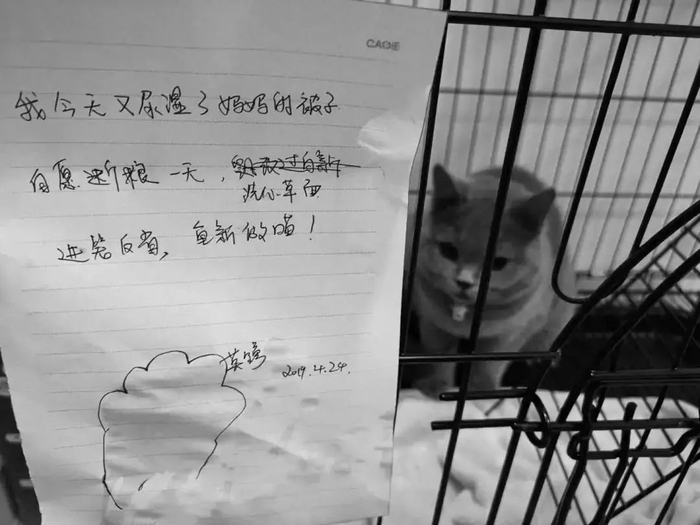 CAGIE
我今天又尿湿了妈妈的被子
自愿断粮一天,
洗心革面
进笼反省,重新做喵!
2019.4.24.